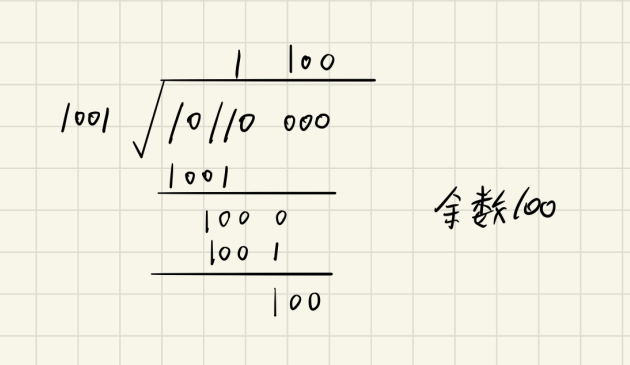 1 100
1001 10110 000
1001
100 0
100 1
100
余数100